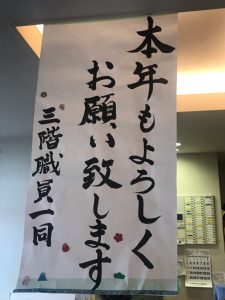 本年もよろしく
お願い致します
三階職員一同